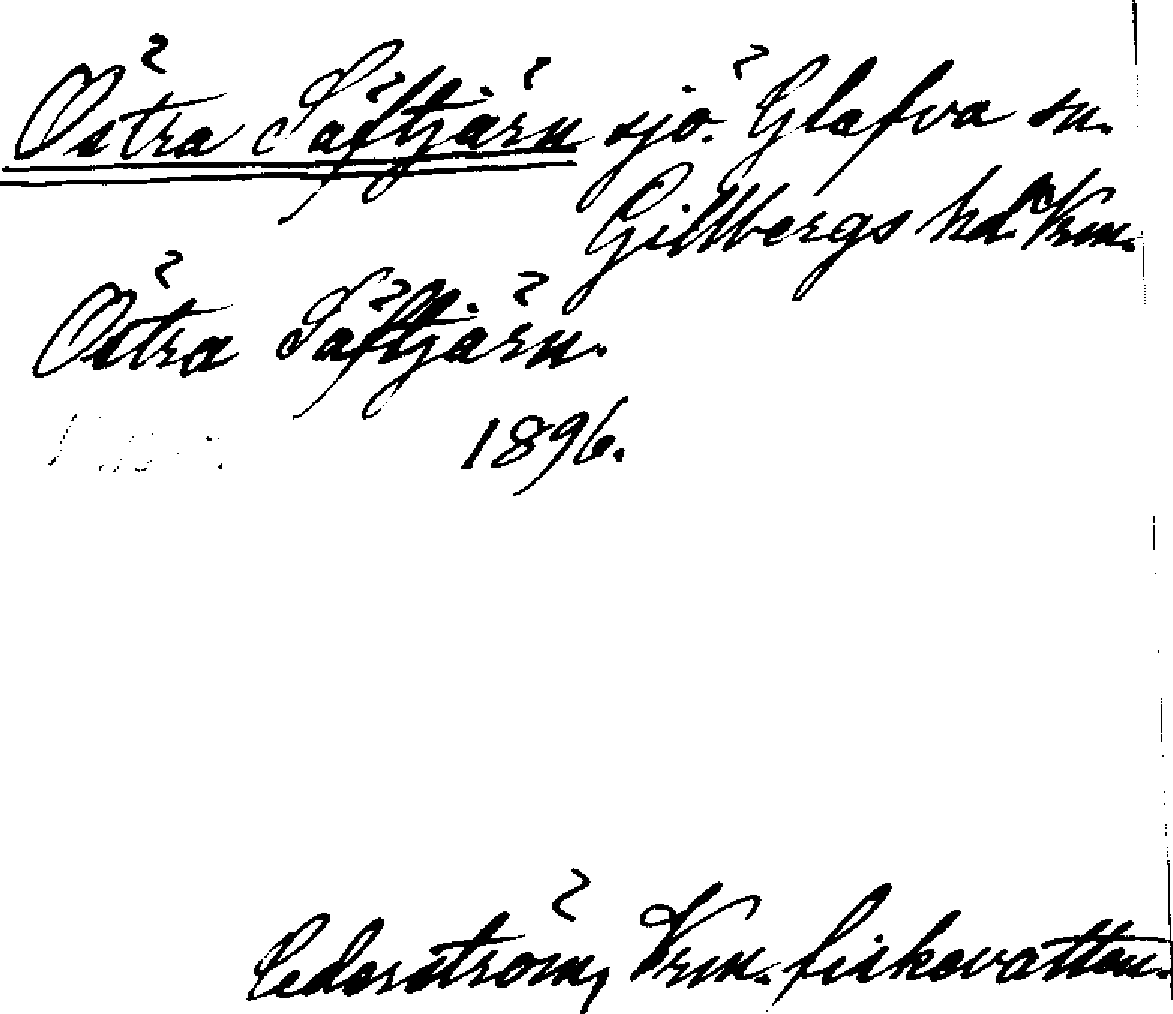 Östra Säftjärn sjö. Glafva sn.
Gillbergs hd Vrm.
Östra Säftjärn.
1896.
Cederström, Vrm. fiskevatten.